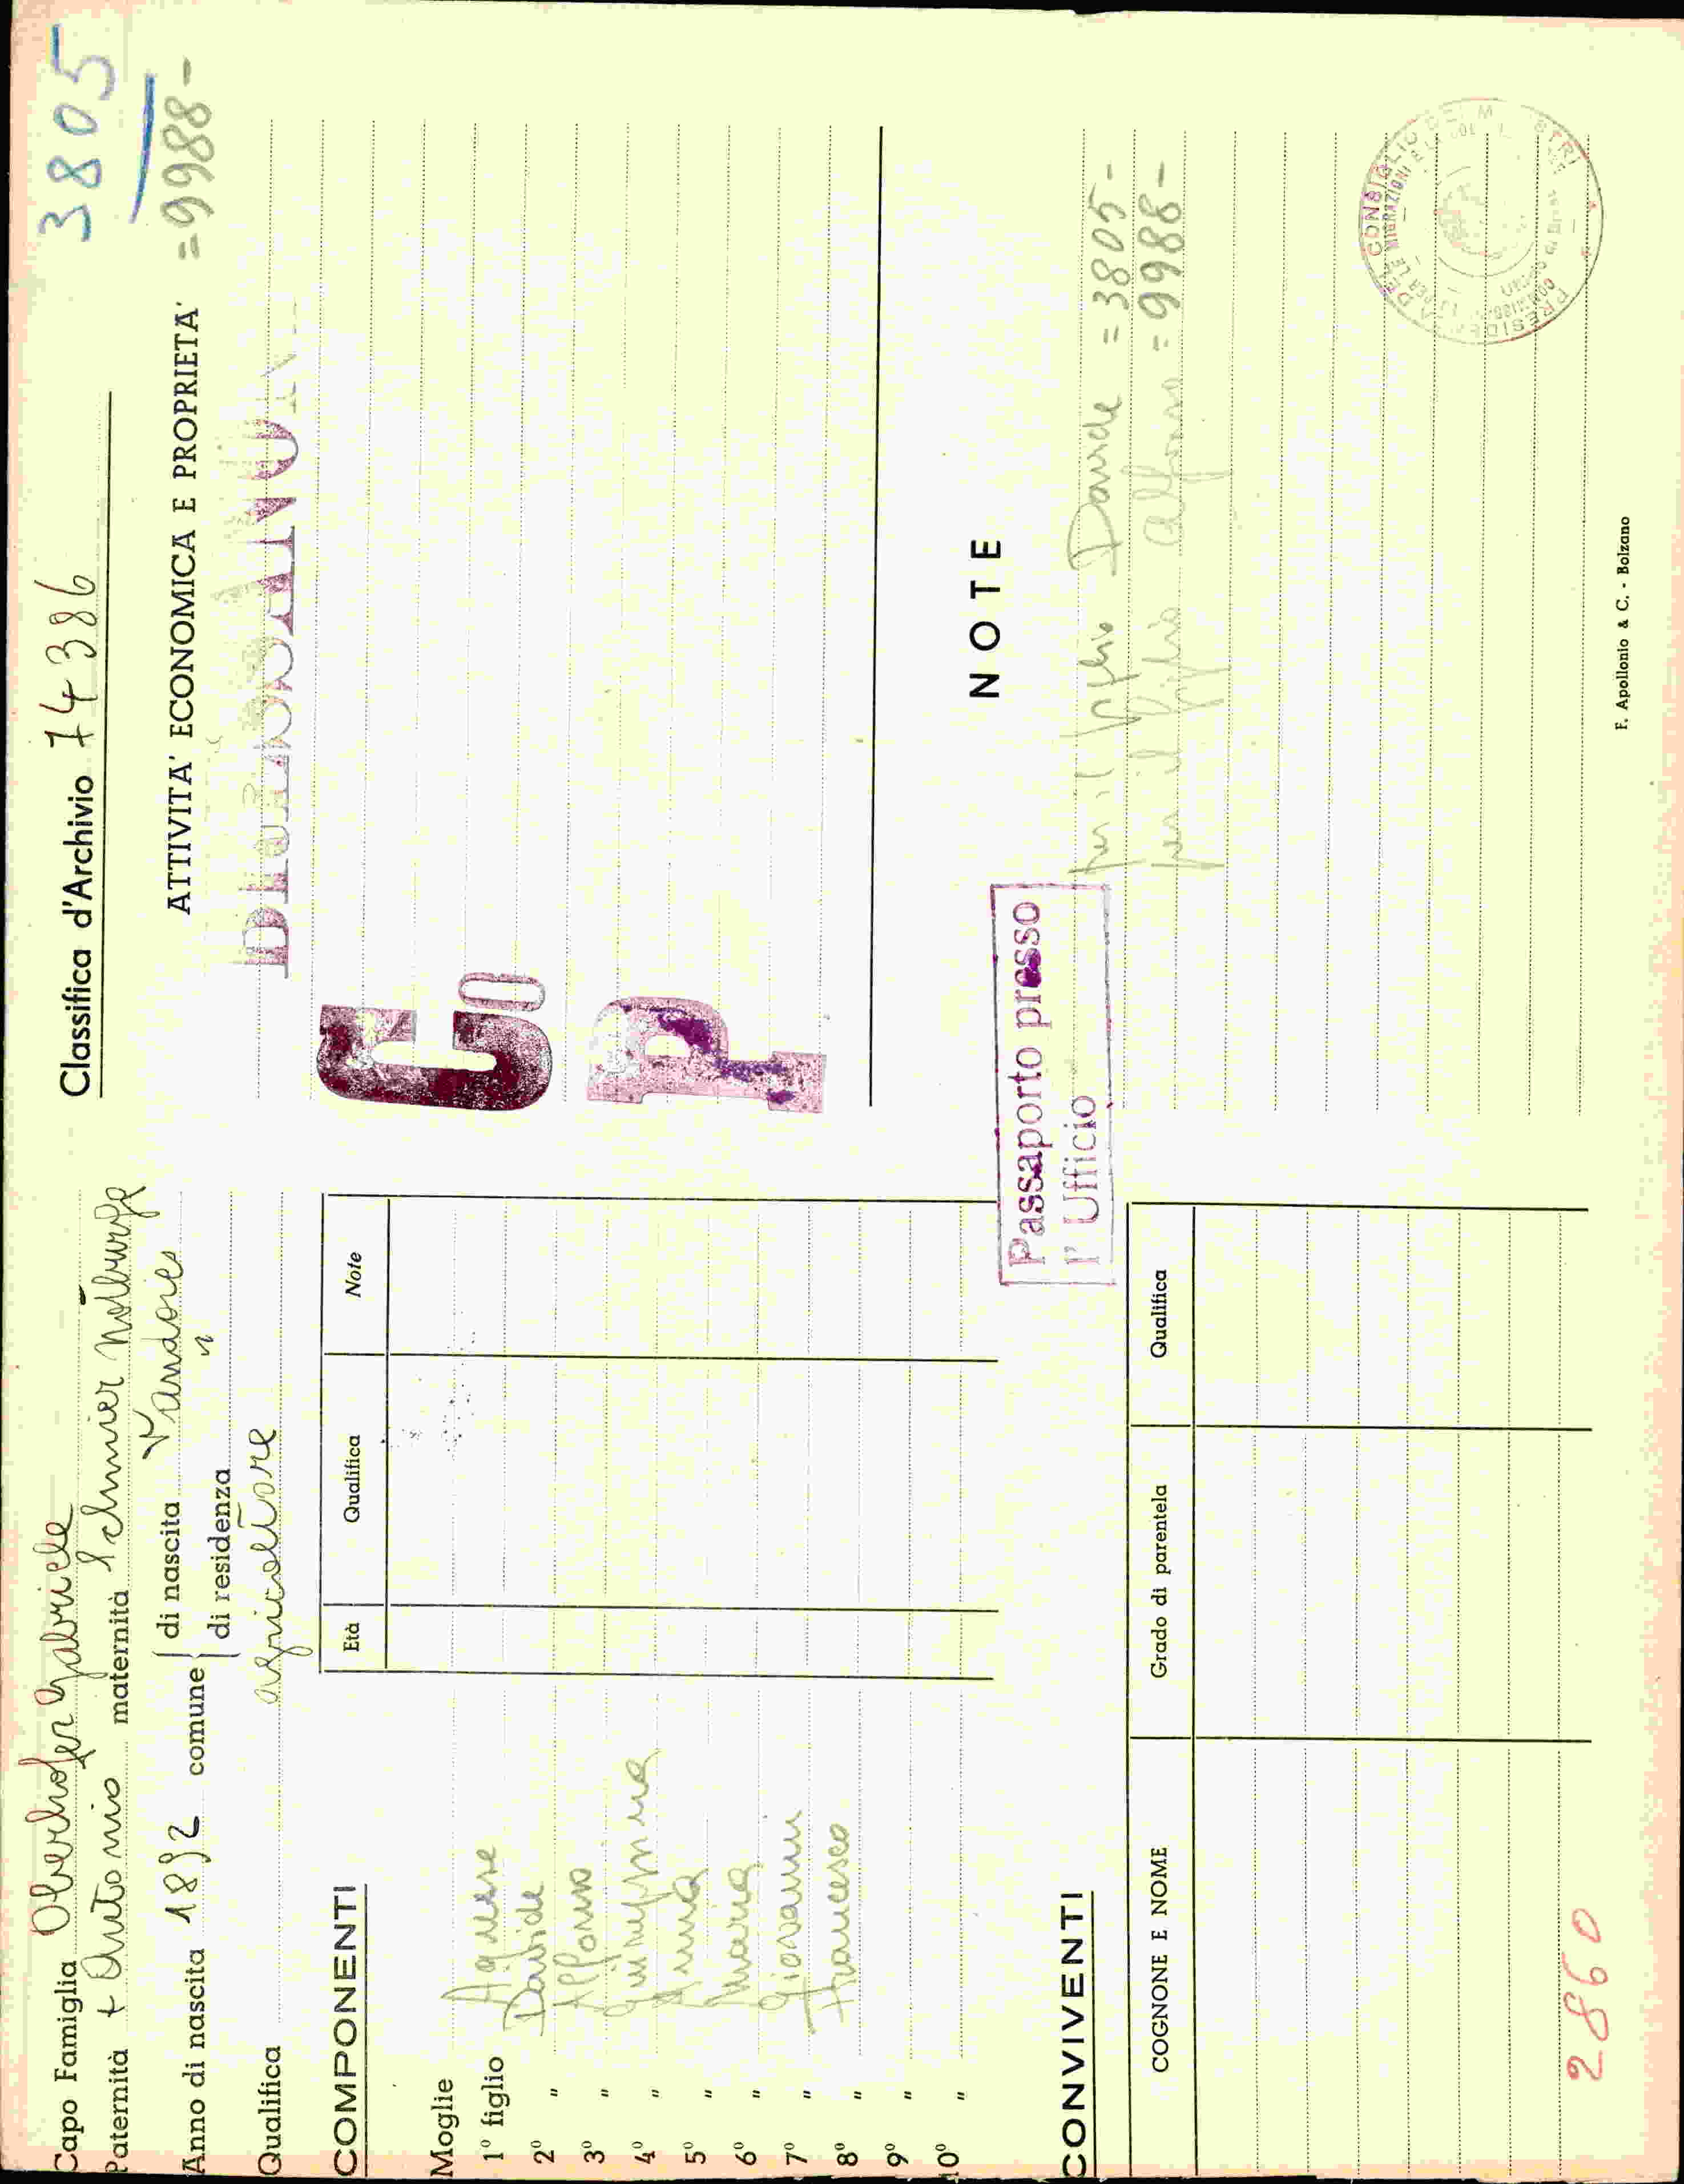 Capo Famiglia Oberhofer Gabriele
Paternità + Antonio maternità Notburga
Anno di nascita 1892 comune di nascita Vandoies
di residenza "
Qualifica agricoltore
COMPONENTI
Età Qualifica Note
Moglie Agnese
1° figlio Davide
2° " Alfonso
3° " Giuseppina
4° " Anna
5° " Maria
6° " Giovanni
7° " Francesco
8° "
9° "
10° "
CONVIVENTI
COGNOME E NOME Grado di parentela Qualifica
2860
Classifica d'Archivio 74386
3805
=9988-
ATTIVITA' ECONOMICA E PROPRIETA'
G
P
NOTE
Passaporto presso
l'Ufficio
per il figlio Davide = 3805-
per il figlio Alfonso = 9988-
F. Apollonio & C. - Bolzano